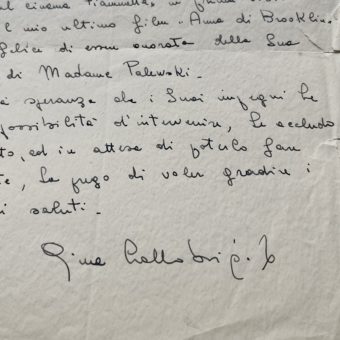 al cinema Fiammetta, in
l mio ultimo film "Anna di Brooklin.
felice di essere onorata della Sua
di Madame Palewski.
a speranza che i Suoi impegni Le
possibilità d'intervenire, Le accludo
to, ed in attesa di poterlo fare
te, La prego di voler gradire i
i saluti.
Gina Lollobrigida